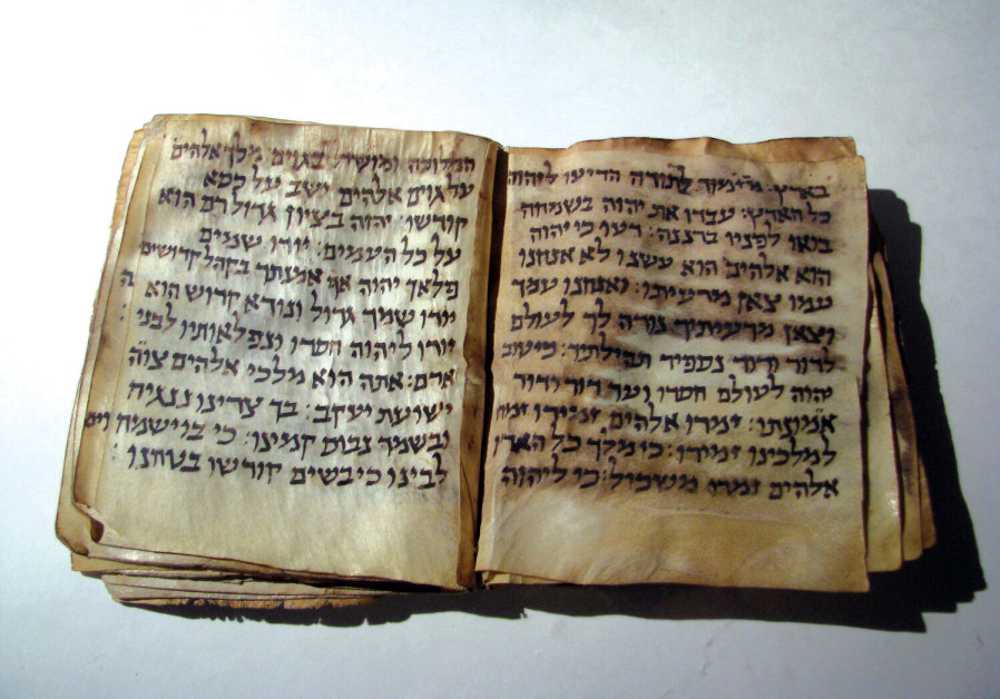 בארץ: מזמור לתודה הריעו ליהוה
כל הארץ: עבדו את יהוה בשמחה
בואו לפניו ברננה: דעו כי יהוה
הוא אלהים הוא עשנו לא אנחנו
עמו צאן מרעיתו: ואנחנו עמך
וצאן מרעיתיך נודה לך לעולם
לדור ודור נספיר תהילתיך: כי טוב
יהוה לעולם חסדו ועד דור ודור
אמונתו: זמרו אלהים
למלכינו זמירו: כי מלך כל הארץ
אלהים זמרו משכיל: כי ליהוה
המלוכה ומושל בגוים: מלך אלהים
על גוים אלהים ישב על כסא
קודשו: יהוה בציון גדול רם הוא
על כל העמים: יודו שמים
פלאך יהוה אף אמנתך בקהל קדושים
יודו שמך גדול ונורא קדוש הוא ה
יודו ליהוה חסדו ונפלאותיו לבני :
אדם: אתה הוא מלכי אלהים צוה
ישועת יעקב: בך צרינו ננגיח
ובשמך נבוס קמינו: כי בו ישמח
לבינו כי בשים קודשו בטחנו :